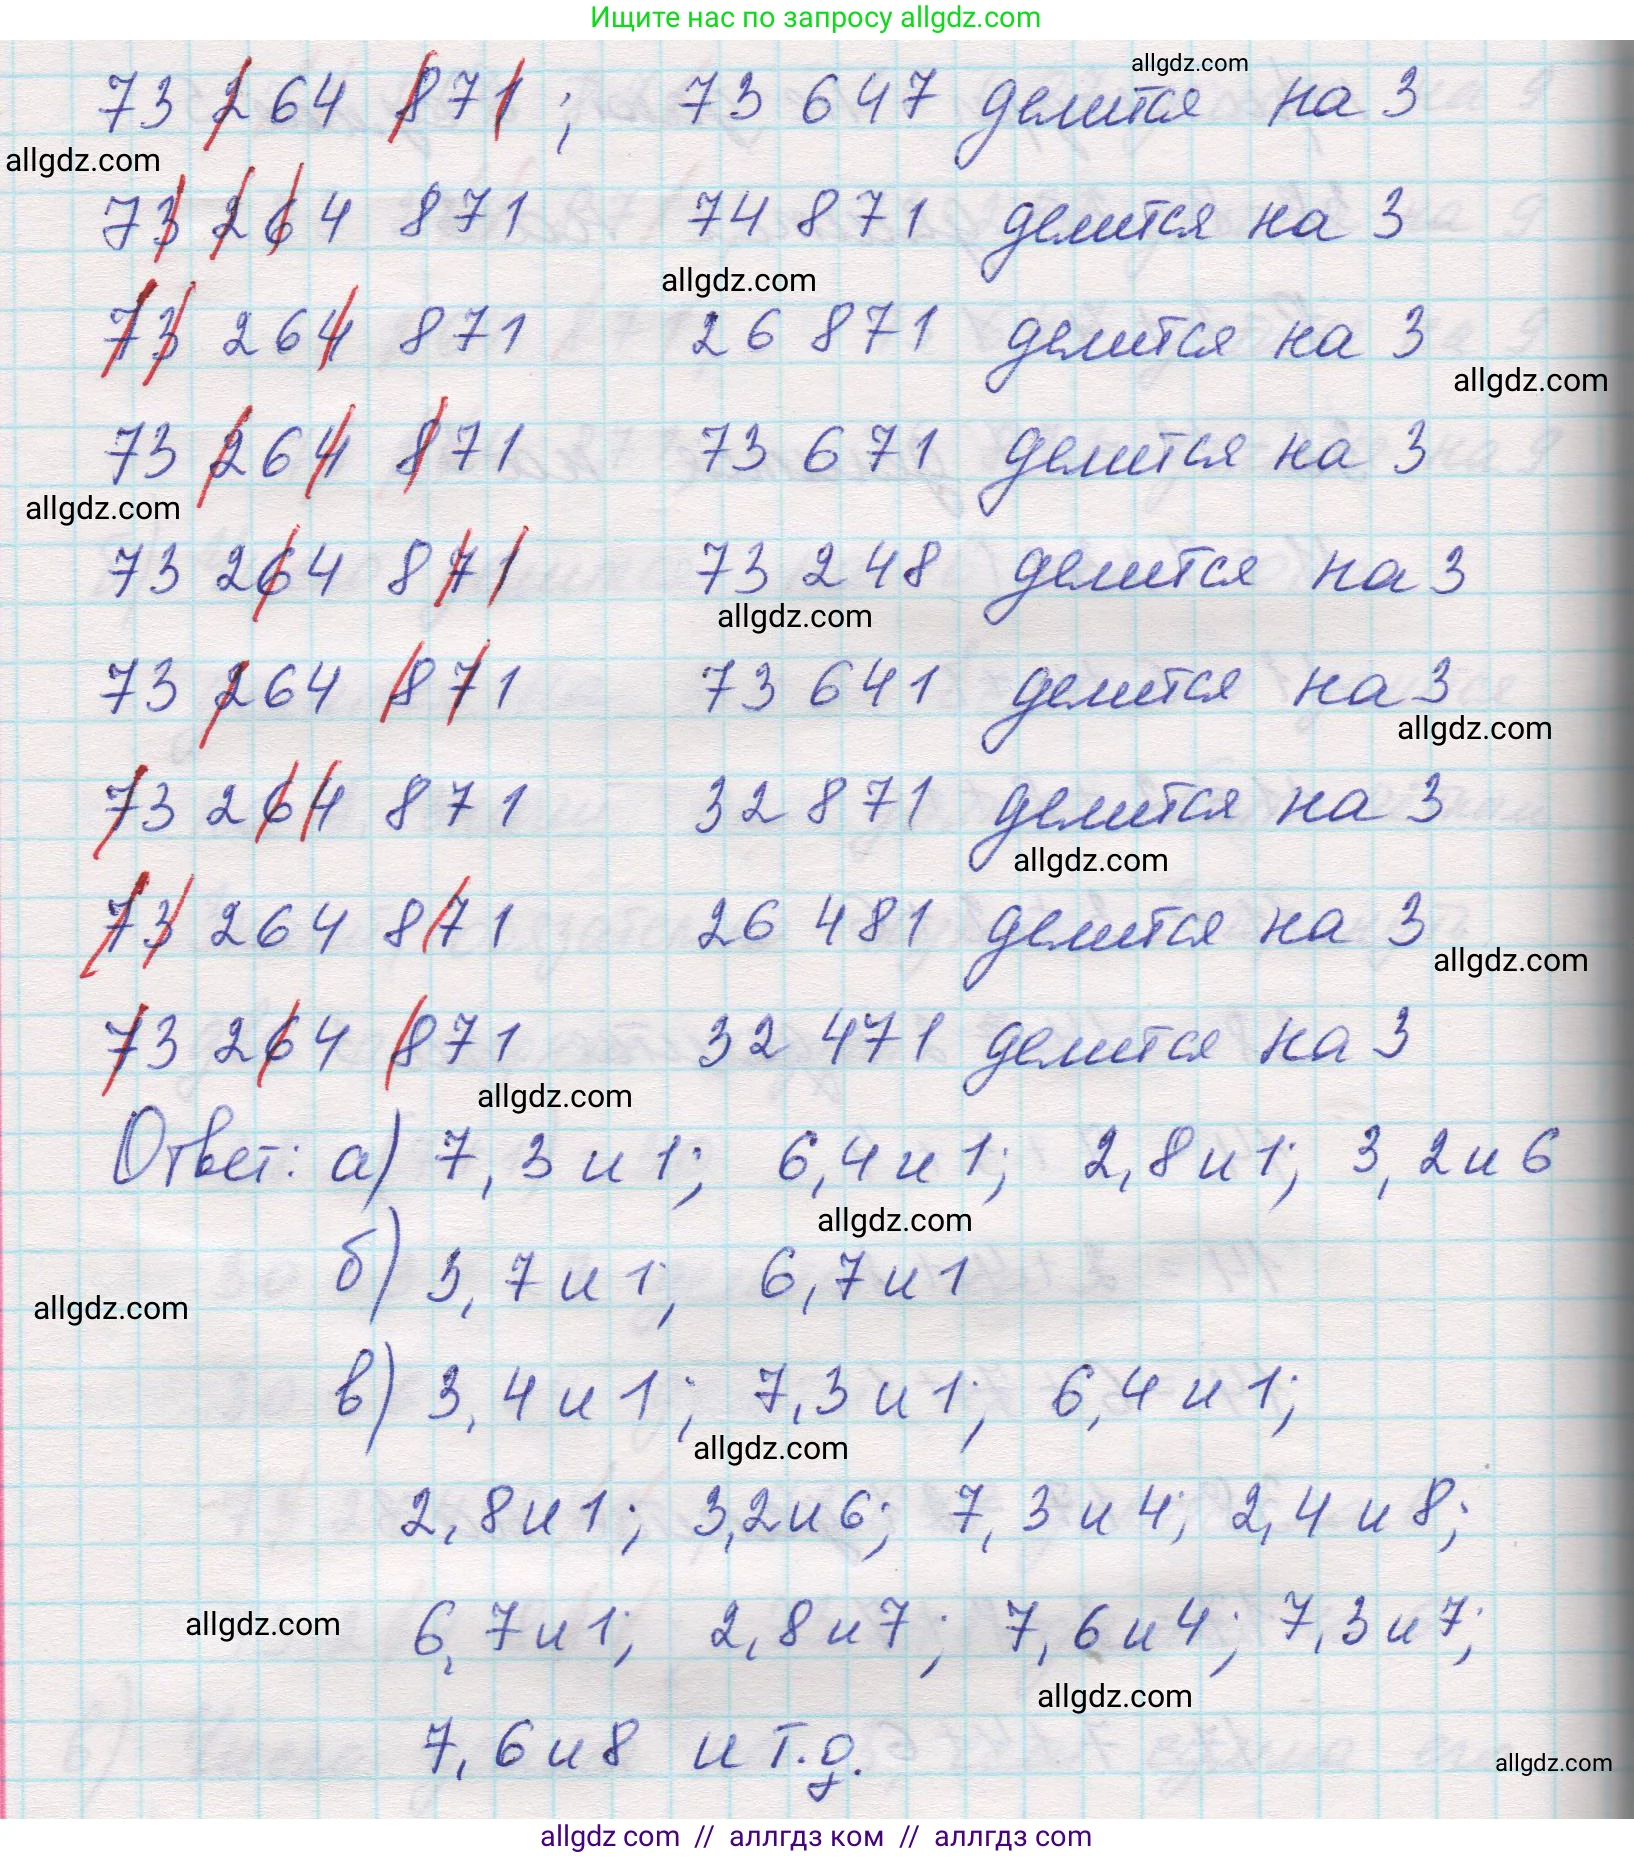 Ищите нас по запросу allgdz.com
allgdz.com
73 264 871; 73 647 делится на 3
allgdz.com
73 264 871 74 871 делится на 3
allgdz.com
73 264 871 26 871 делится на 3
allgdz.com
73 264 871 73 671 делится на 3
allgdz.com
73 264 871 73 248 делится на 3
allgdz.com
73 264 871 73 641 делится на 3
allgdz.com
73 264 871 32 871 делится на 3
allgdz.com
73 264 871 26 481 делится на 3
allgdz.com
73 264 871 32 471 делится на 3
allgdz.com
Ответ: а) 7, 3 и 1; 6, 4 и 1; 2, 8 и 1; 3, 2 и 6
allgdz.com
б) 3, 7 и 1; 6, 7 и 1
allgdz.com
в) 3, 4 и 1; 7, 3 и 1; 6, 4 и 1;
allgdz.com
2, 8 и 1; 3, 2 и 6; 7, 3 и 4; 2, 4 и 8;
6, 7 и 1; 2, 8 и 7; 7, 6 и 4; 7, 3 и 7;
allgdz.com
allgdz.com
7, 6 и 8 и т.д.
allgdz.com
allgdz com // аллгдз ком // аллгдз com